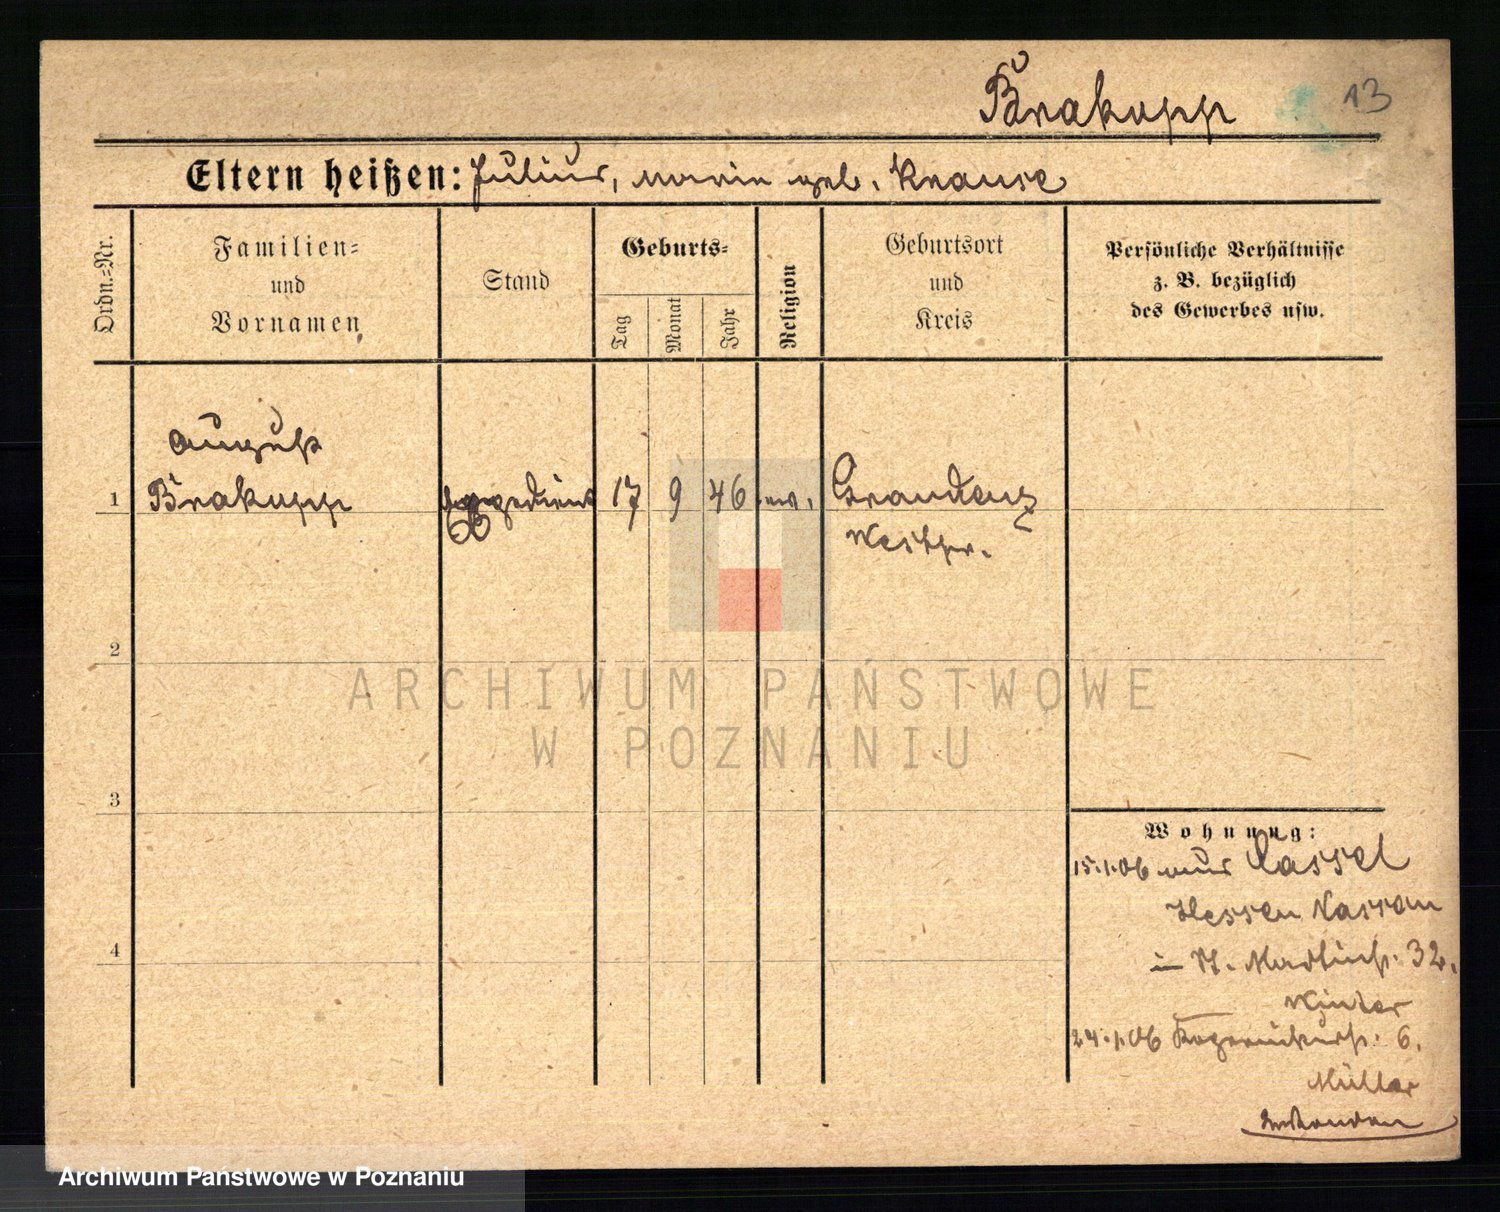 Brakopp 13
Eltern heißen: Julius, Marie geb. Krause
Ordn.=Nr.
Familien=
und
Vornamen
Stand
Geburts=
Tag
Monat
Jahr
Religion
Geburtsort
und
Kreis
Persönliche Verhältnisse
z. B. bezüglich
des Gewerbes usw.
August
1 Brakopp 17 9 46 ev. Graudenz
Westpr.
2
3
4
Wohnung:
15.1.06 aus Cassel
Hessen Nassau
in St. Martinstr. 32.
Winter
24.1.06 6.
Müller
ARCHIWUM PAŃSTWOWE
W POZNANIU
Archiwum Państwowe w Poznaniu